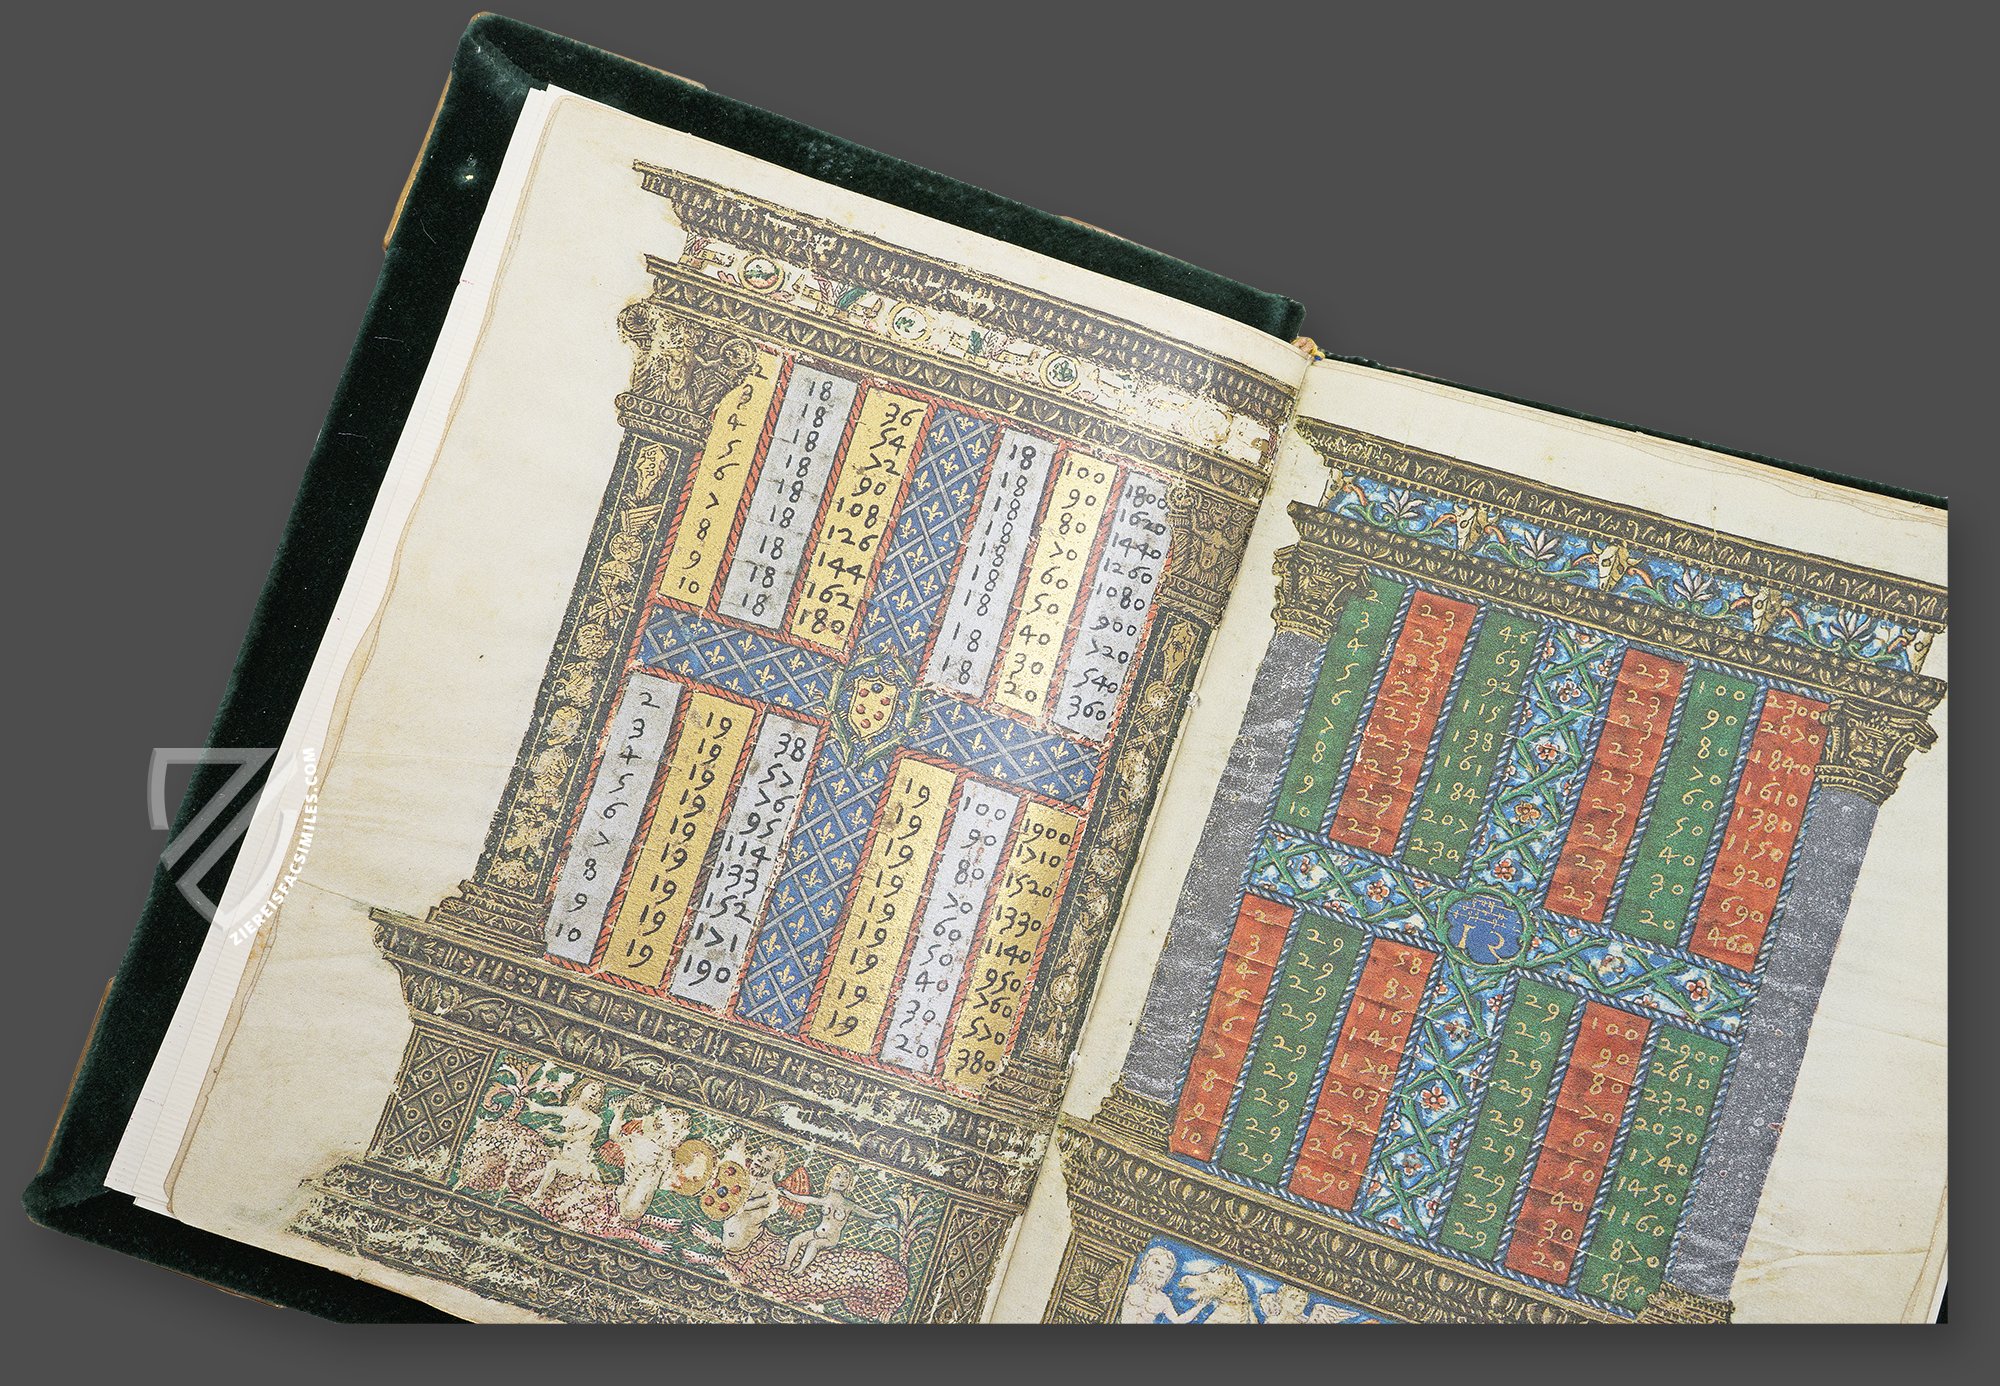 SPQR
2 18 36
3 18 54
4 18 72
5 18 90
6 18 108
7 18 126
8 18 144
9 18 162
10 18 180
18 100 1800
18 90 1620
18 80 1440
18 70 1260
18 60 1080
18 50 900
18 40 720
18 30 540
18 20 360
2 19 38
3 19 57
4 19 76
5 19 95
6 19 114
7 19 133
8 19 152
9 19 171
10 19 190
19 100 1900
19 90 1710
19 80 1520
19 70 1330
19 60 1140
19 50 950
19 40 760
19 30 570
19 20 380
2 23 46
3 23 69
4 23 92
5 23 115
6 23 138
7 23 161
8 23 184
9 23 207
10 23 230
23 100 2300
23 90 2070
23 80 1840
23 70 1610
23 60 1380
23 50 1150
23 40 920
23 30 690
23 20 460
2 29 58
3 29 87
4 29 116
5 29 145
6 29 174
7 29 203
8 29 232
9 29 261
10 29 290
29 100 2900
29 90 2610
29 80 2320
29 70 2030
29 60 1740
29 50 1450
29 40 1160
29 30 870
29 20 580
ZIEREISFACSIMILES.COM